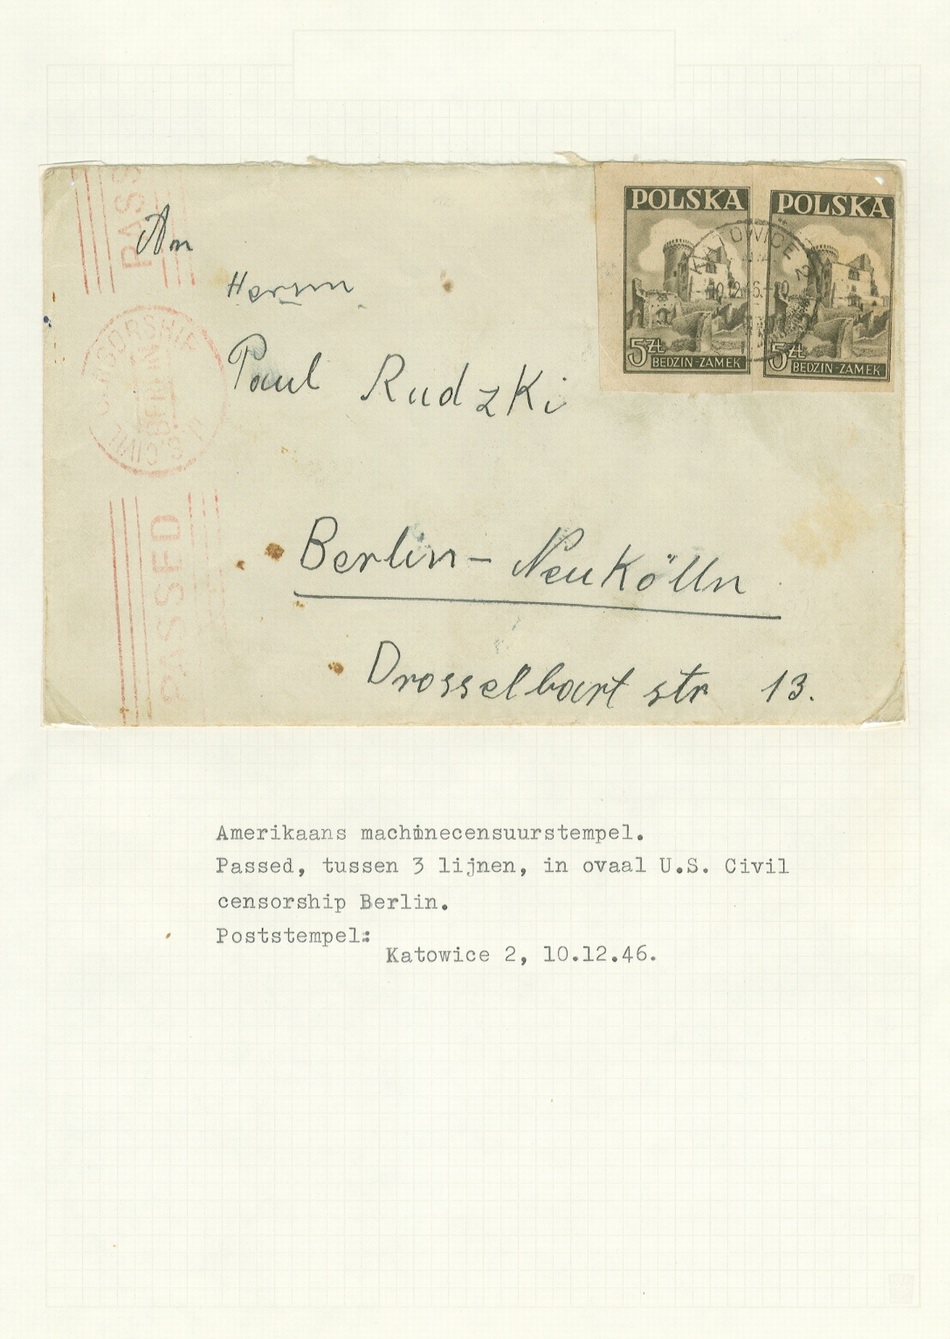 An
Herrn
Paul Rudzki
Berlin-Neukölln
Drosselbart str 13.
POLSKA
5 zł
BĘDZIN-ZAMEK
POLSKA
5 zł
BĘDZIN-ZAMEK
KATOWICE 2
10.12.46.
PASS
CENSORSHIP
CIVIL
U.S.
PASSED
Amerikaans machinecensuurstempel.
Passed, tussen 3 lijnen, in ovaal U.S. Civil
censorship Berlin.
Poststempel:
Katowice 2, 10.12.46.